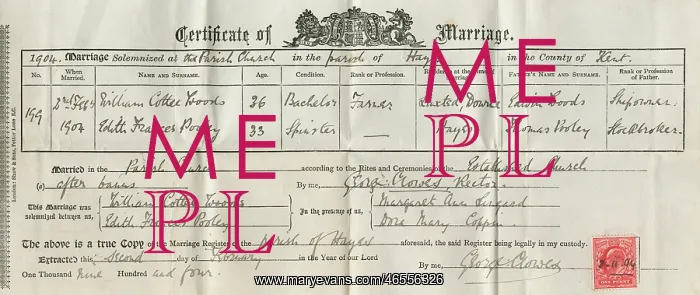 Certificate of Marriage.
1904. Marriage Solemnized at the Parish Church in the parish of Hayes in the County of Kent.
No. When Married. Name and Surname. Age. Condition. Rank or Profession. Residence at the time of Marriage. Father's Name and Surname. Rank or Profession of Father.
199 2nd Feby William Cottee Woods 36 Bachelor Farmer Downe Edwin Woods Shipowner
1904 Edith Frances Pooley 33 Spinster — Hayes Thomas Pooley Stockbroker
ME
PL
ME
PL
Married in the Parish Church according to the Rites and Ceremonies of the Established Church
(c) after banns By me, George Clowes Rector.
This Marriage was solemnized between us, William Cottee Woods Edith Frances Pooley In the presence of us, Margaret Ann Dora Mary Coppin
The above is a true Copy of the Marriage Register of the parish of Hayes aforesaid, the said Register being legally in my custody.
Extracted this Second day of February in the Year of our Lord
One Thousand Nine Hundred and four. By me, George Clowes
ONE PENNY
www.maryevans.com/46556326